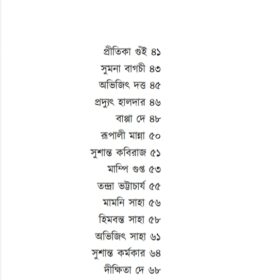 প্রীতিকা গুঁই ৪১
সুমনা বাগচী ৪৩
অভিজিৎ দত্ত ৪৫
প্রদ্যুৎ হালদার ৪৬
বাপ্পা দে ৪৮
রূপালী মান্না ৫০
সুশান্ত কবিরাজ ৫১
মাম্পি গুপ্ত ৫৩
তন্দ্রা ভট্টাচার্য ৫৫
মামনি সাহা ৫৬
হিমবন্ত সাহা ৫৮
অভিজিৎ সাহা ৬১
সুশান্ত কর্মকার ৬৪
দীক্ষিতা দে ৬৮